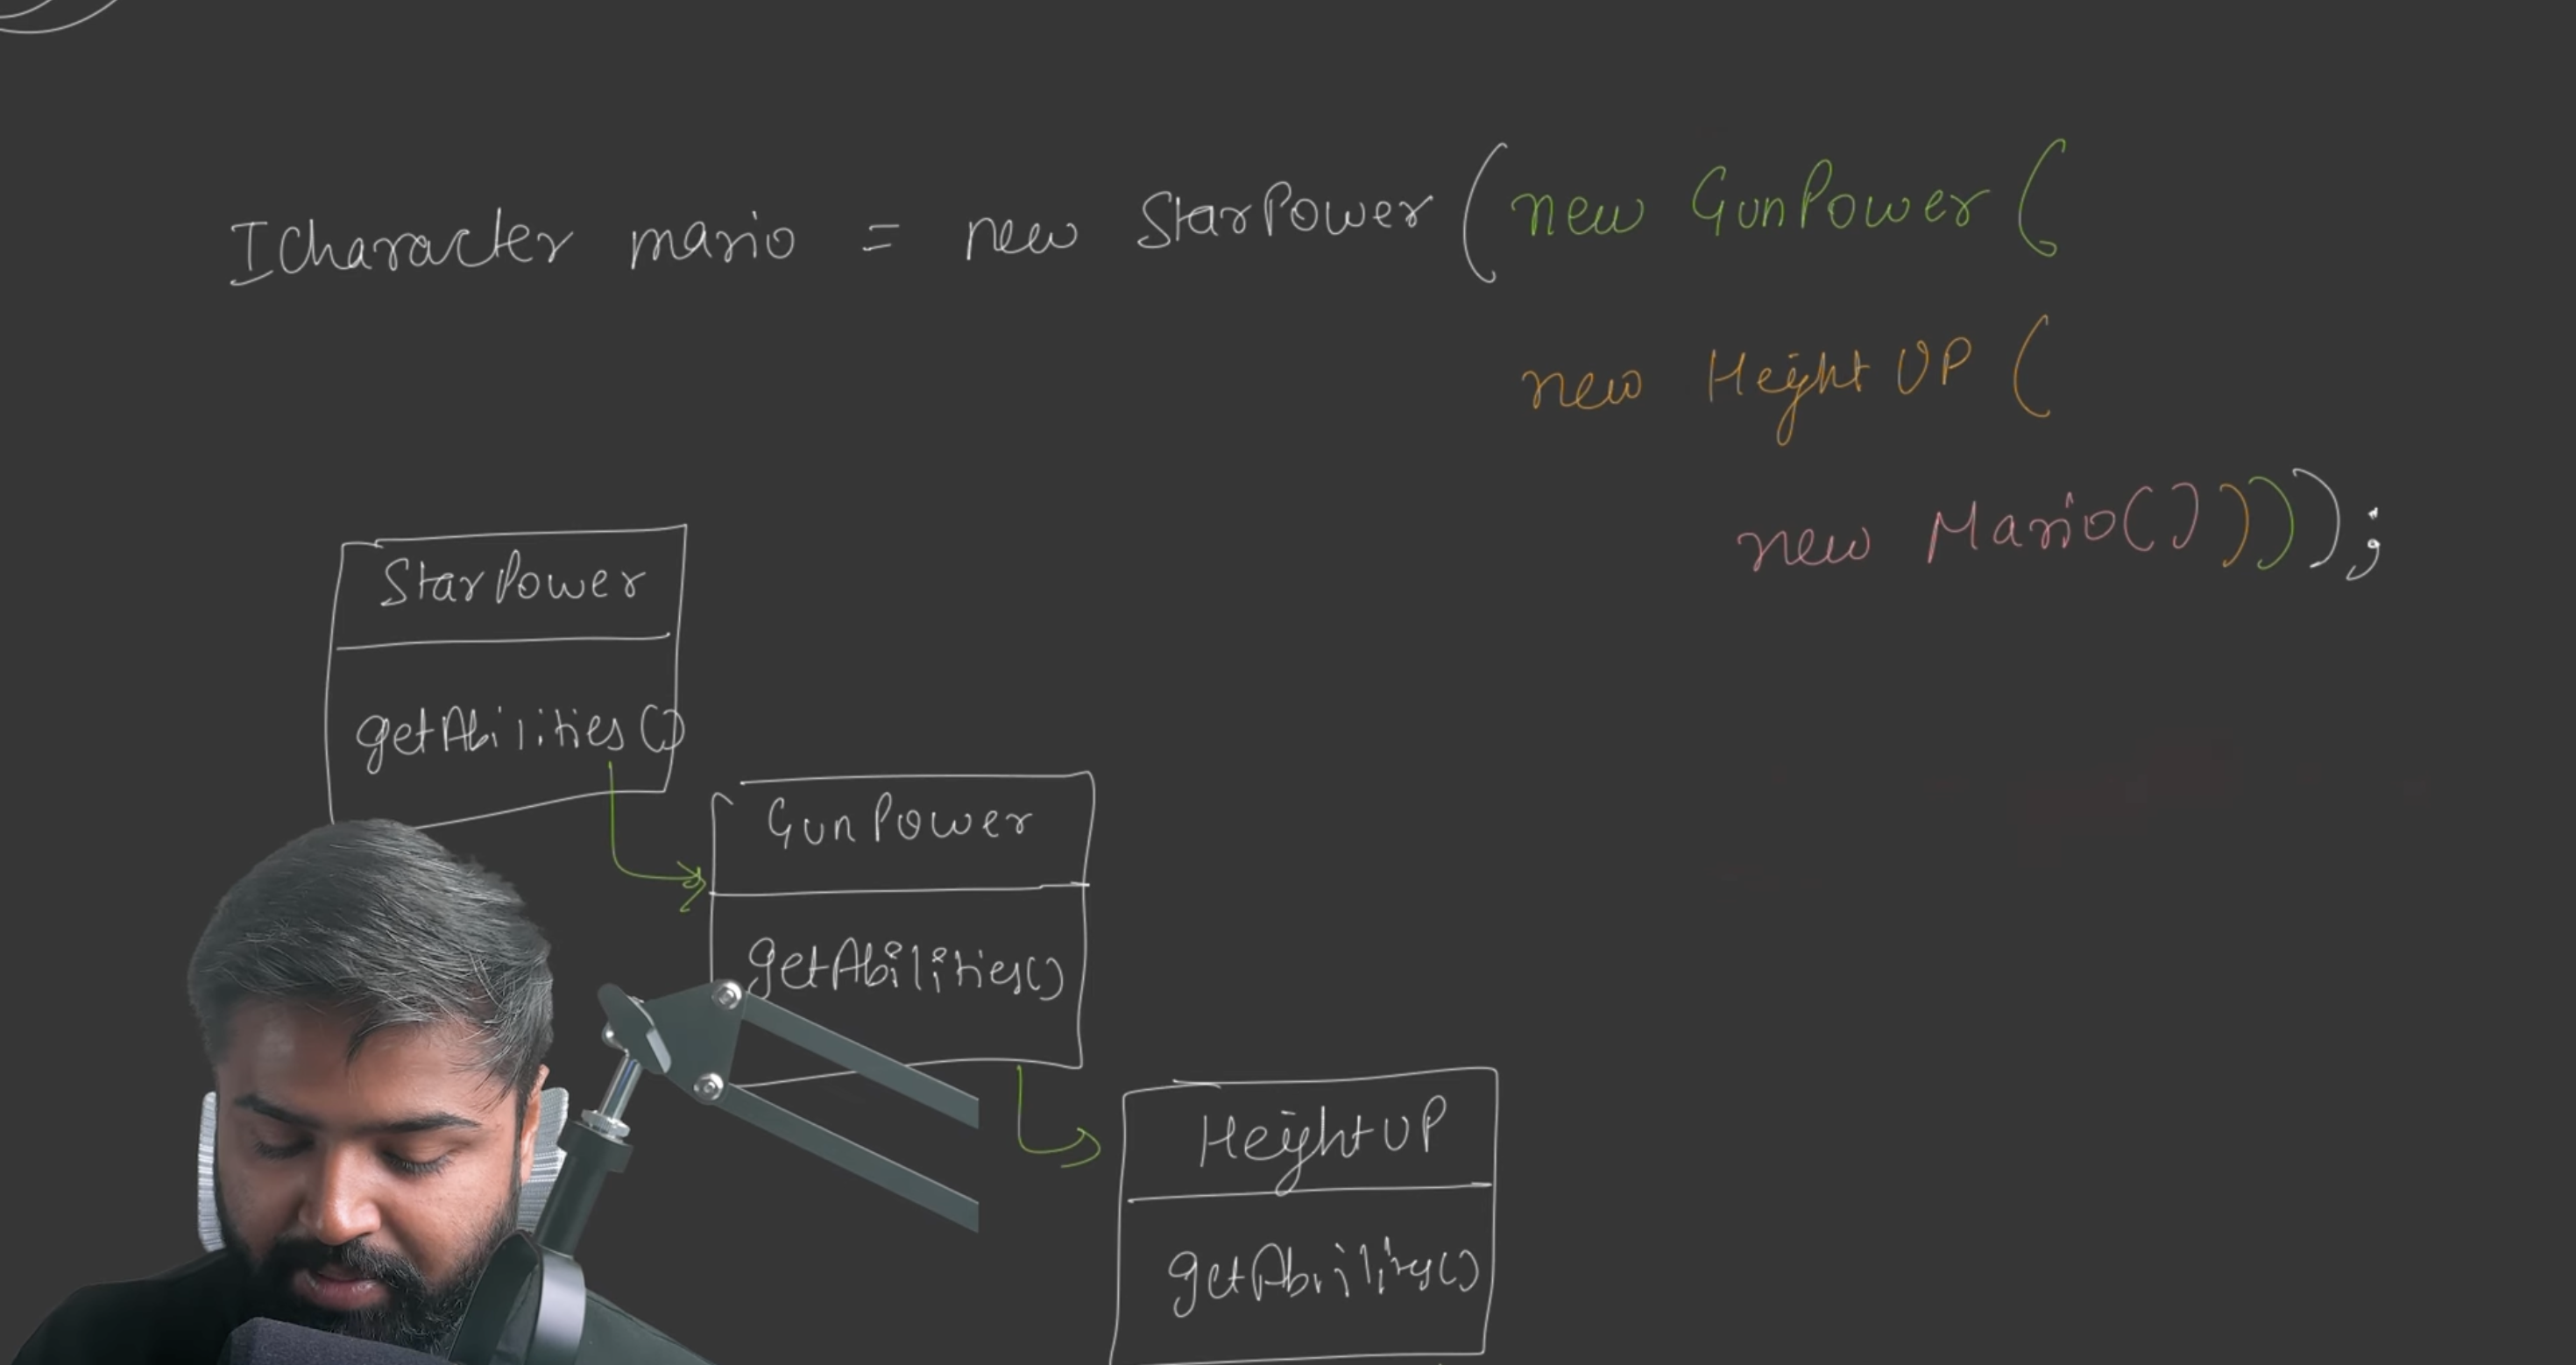 ICharacter mario = new StarPower(new GunPower(
new HeightUP(
new Mario())));
StarPower
getAbilities()
GunPower
getAbilities()
HeightUP
getAbilities()